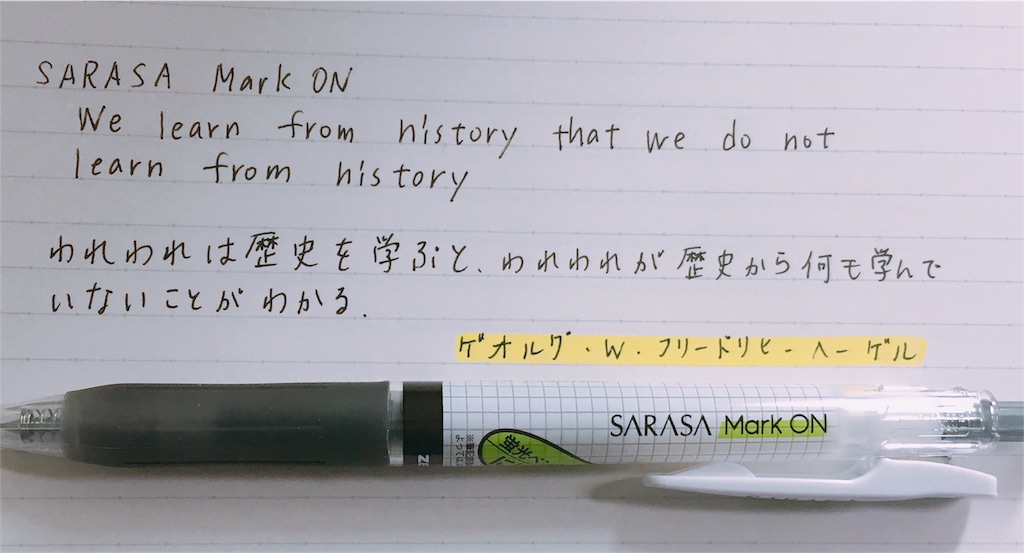 SARASA Mark ON
We learn from history that we do not
learn from history
われわれは歴史を学ぶと、われわれが歴史から何も学んで
いないことがわかる.
ゲオルグ・W・フリードリヒ・ヘーゲル
SARASA Mark ON